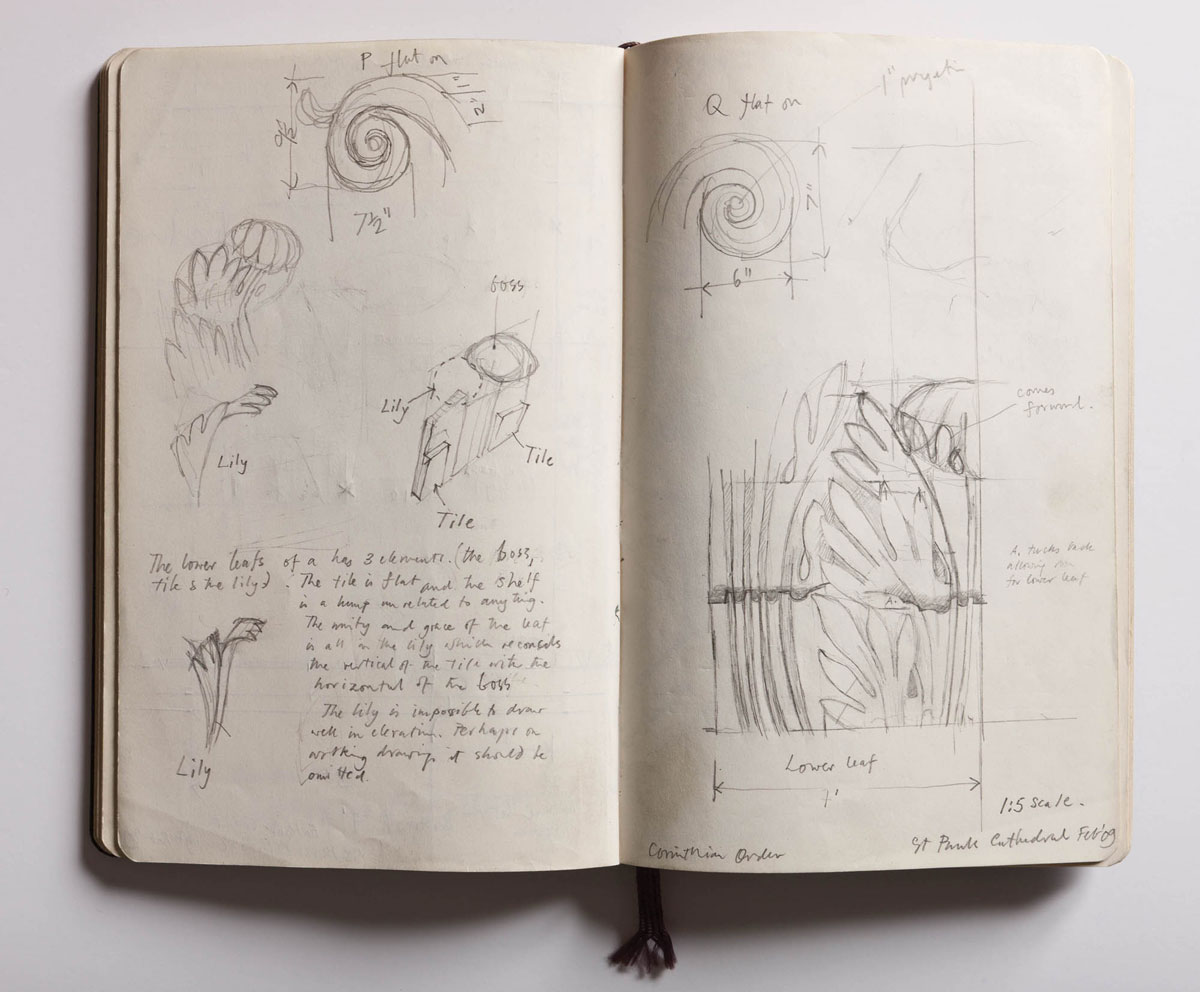 P flat on
1"
2"
9½
7½"
boss
Lily
Lily
Tile
Tile
The lower leafs of a has 3 elements. (the boss,
tile & the lily). The tile is flat and the shelf
is a hump unrelated to anything.
The unity and grace of the leaf
is all in the lily which reconsils
the vertical of the tile with the
horizontal of the boss
The lily is impossible to draw
well in elevation. Perhaps on
working drawings it should be
omitted.
Lily
Q flat on
1"
7"
6"
comes
forward.
A. tucks back
allowing
for lower leaf
A.
Lower leaf
7'
1:5 scale.
Corinthian Order
St Pauls Cathedral Feb'09